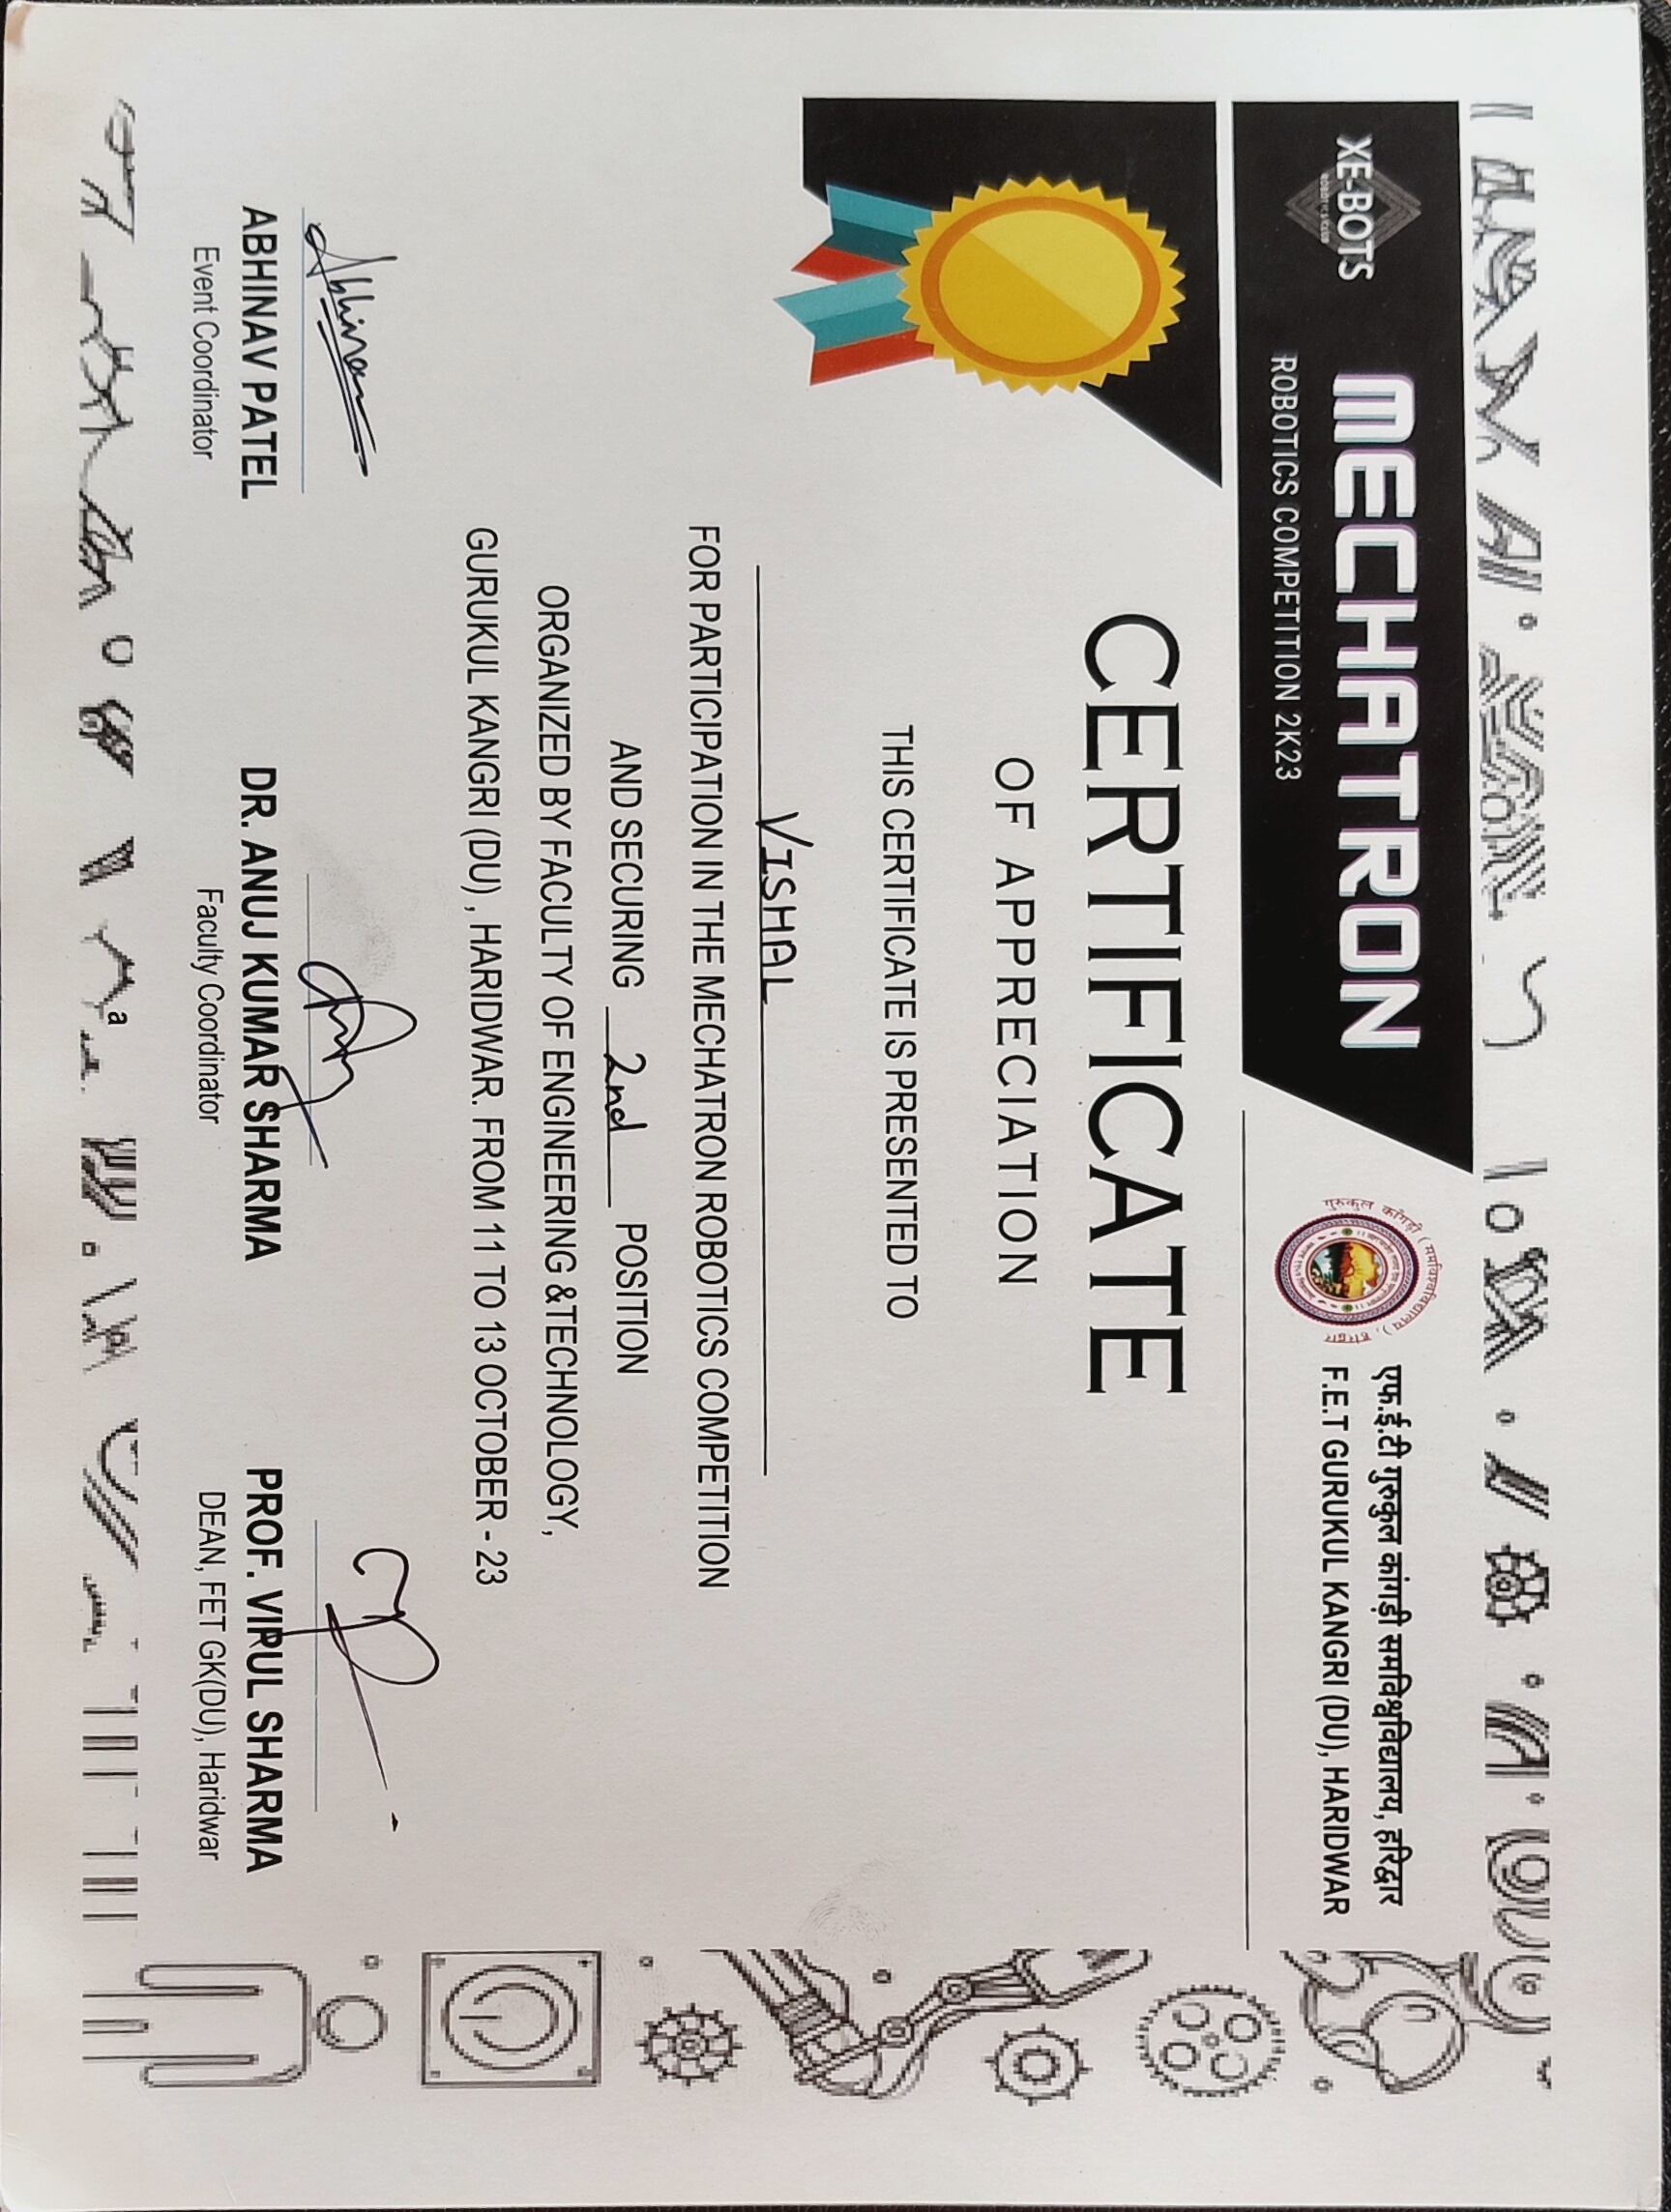 XE-BOTS
ROBOTICS CLUB
MECHATRON
ROBOTICS COMPETITION 2K23
गुरुकुल कांगड़ी (समविश्वविद्यालय), हरिद्वार
एफ.ई.टी गुरुकुल कांगड़ी समविश्वविद्यालय, हरिद्वार
F.E.T GURUKUL KANGRI (DU), HARIDWAR
CERTIFICATE
OF APPRECIATION
THIS CERTIFICATE IS PRESENTED TO
VISHAL
FOR PARTICIPATION IN THE MECHATRON ROBOTICS COMPETITION
AND SECURING 2nd POSITION
ORGANIZED BY FACULTY OF ENGINEERING &TECHNOLOGY,
GURUKUL KANGRI (DU) , HARIDWAR. FROM 11 TO 13 OCTOBER - 23
Abhinav
ABHINAV PATEL
Event Coordinator
DR. ANUJ KUMAR SHARMA
Faculty Coordinator
PROF. VIPUL SHARMA
DEAN, FET GK(DU), Haridwar
a